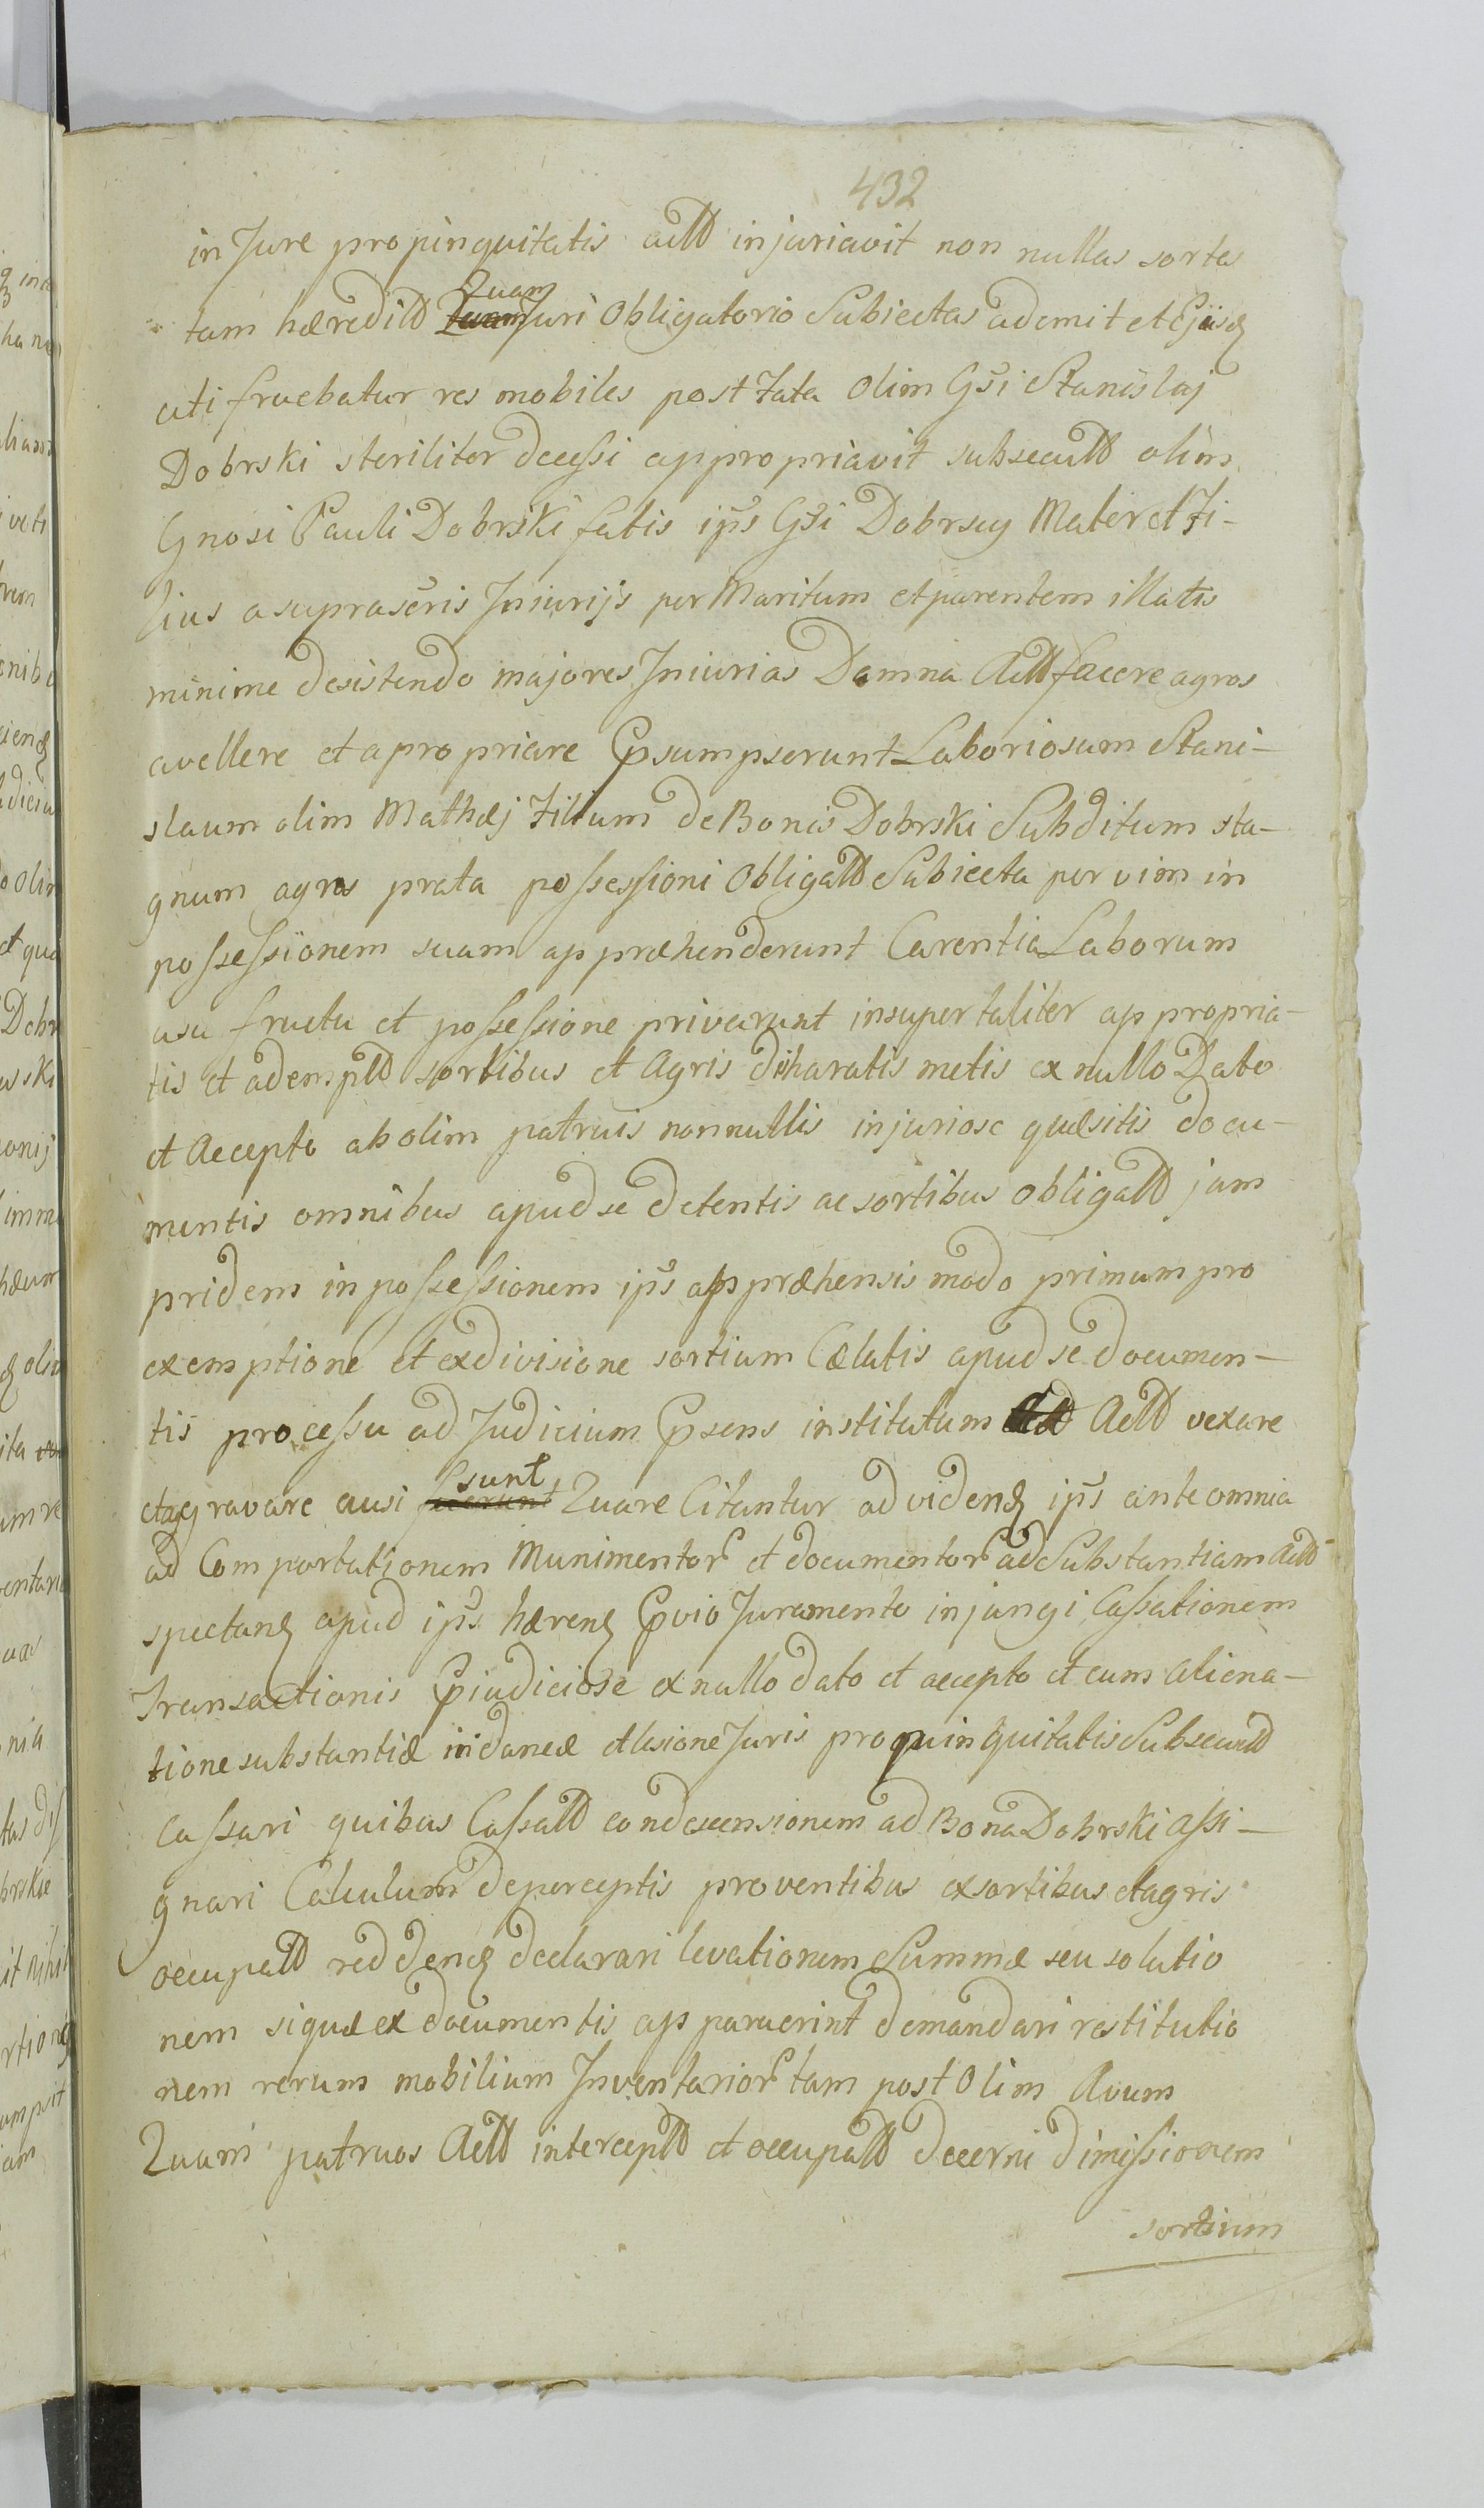 432
in Jure propinquitatis actt injuriavit non nullas sortes
tam hæredítt Quam Juri Obligatorio Subiectas ademit et Eiusq
uti fruebatur res mobiles post Fata Olim Gsi Stanislaj
Dobrski steriliter decessi appropriavit subsecutt olim
Gnosi Pauli Dobrski fatis ips Gsi Dobrscy Mater et Fi-
lius a suprascris Iniurijs per Maritum et parentem illatis
minime desistendo majores Iniurias Damna Actt facere agros
avellere et apropriare Psumpserunt Laboriosum Stani-
slaum olim Mathæj Filium de Bonis Dobrski Subditum sta-
gnum agros prata possessioni Obligatt Subiecta per vim in
possessionem suam appræhenderunt Carentia Laborum
usu fructu et possessione privarunt insuper taliter appropria-
tis et adempltt sortibus et Agris disharatis metis ex nullo Dato
et Accepto ab olim patruis nonnullis injuriose quæsitis docu-
mentis omnibus apud se detentis ac sortibus obligatt jam
pridem in possessionem ips appræhensis modo primum pro
exemptione et exdivisione sortium Cælatis apud se documen-
tis processu ad Judicium Psens institutum Actt vexare
et aggravare ausi sunt Quare Citantur ad videnq ips ante omnia
ad Comportationem Munimentor et documentor ad Substantiam Actt
spectanq apud ips hærenq Pvio Juramento injungi Cassationem
Transactionis Piudiciose ex nullo dato et accepto et cum aliena-
tione substantiæ iidaneæ et læsione Juris propinquitatis Subsecutt
Cassari quibus Cassatt condescensionem ad Bona Dobrski assi-
gnari Calculum de perceptis proventibus ex sortibus et agris
occupatt reddenq declarari levationem Summæ seu solutio
nem siquæ ex documentis apparuerint demandari restitutio
nem rerum mobilium Inventarior tam post Olim Avum
Quam patruos Actt interceptt et occupatt decerni dimissionem
sortium